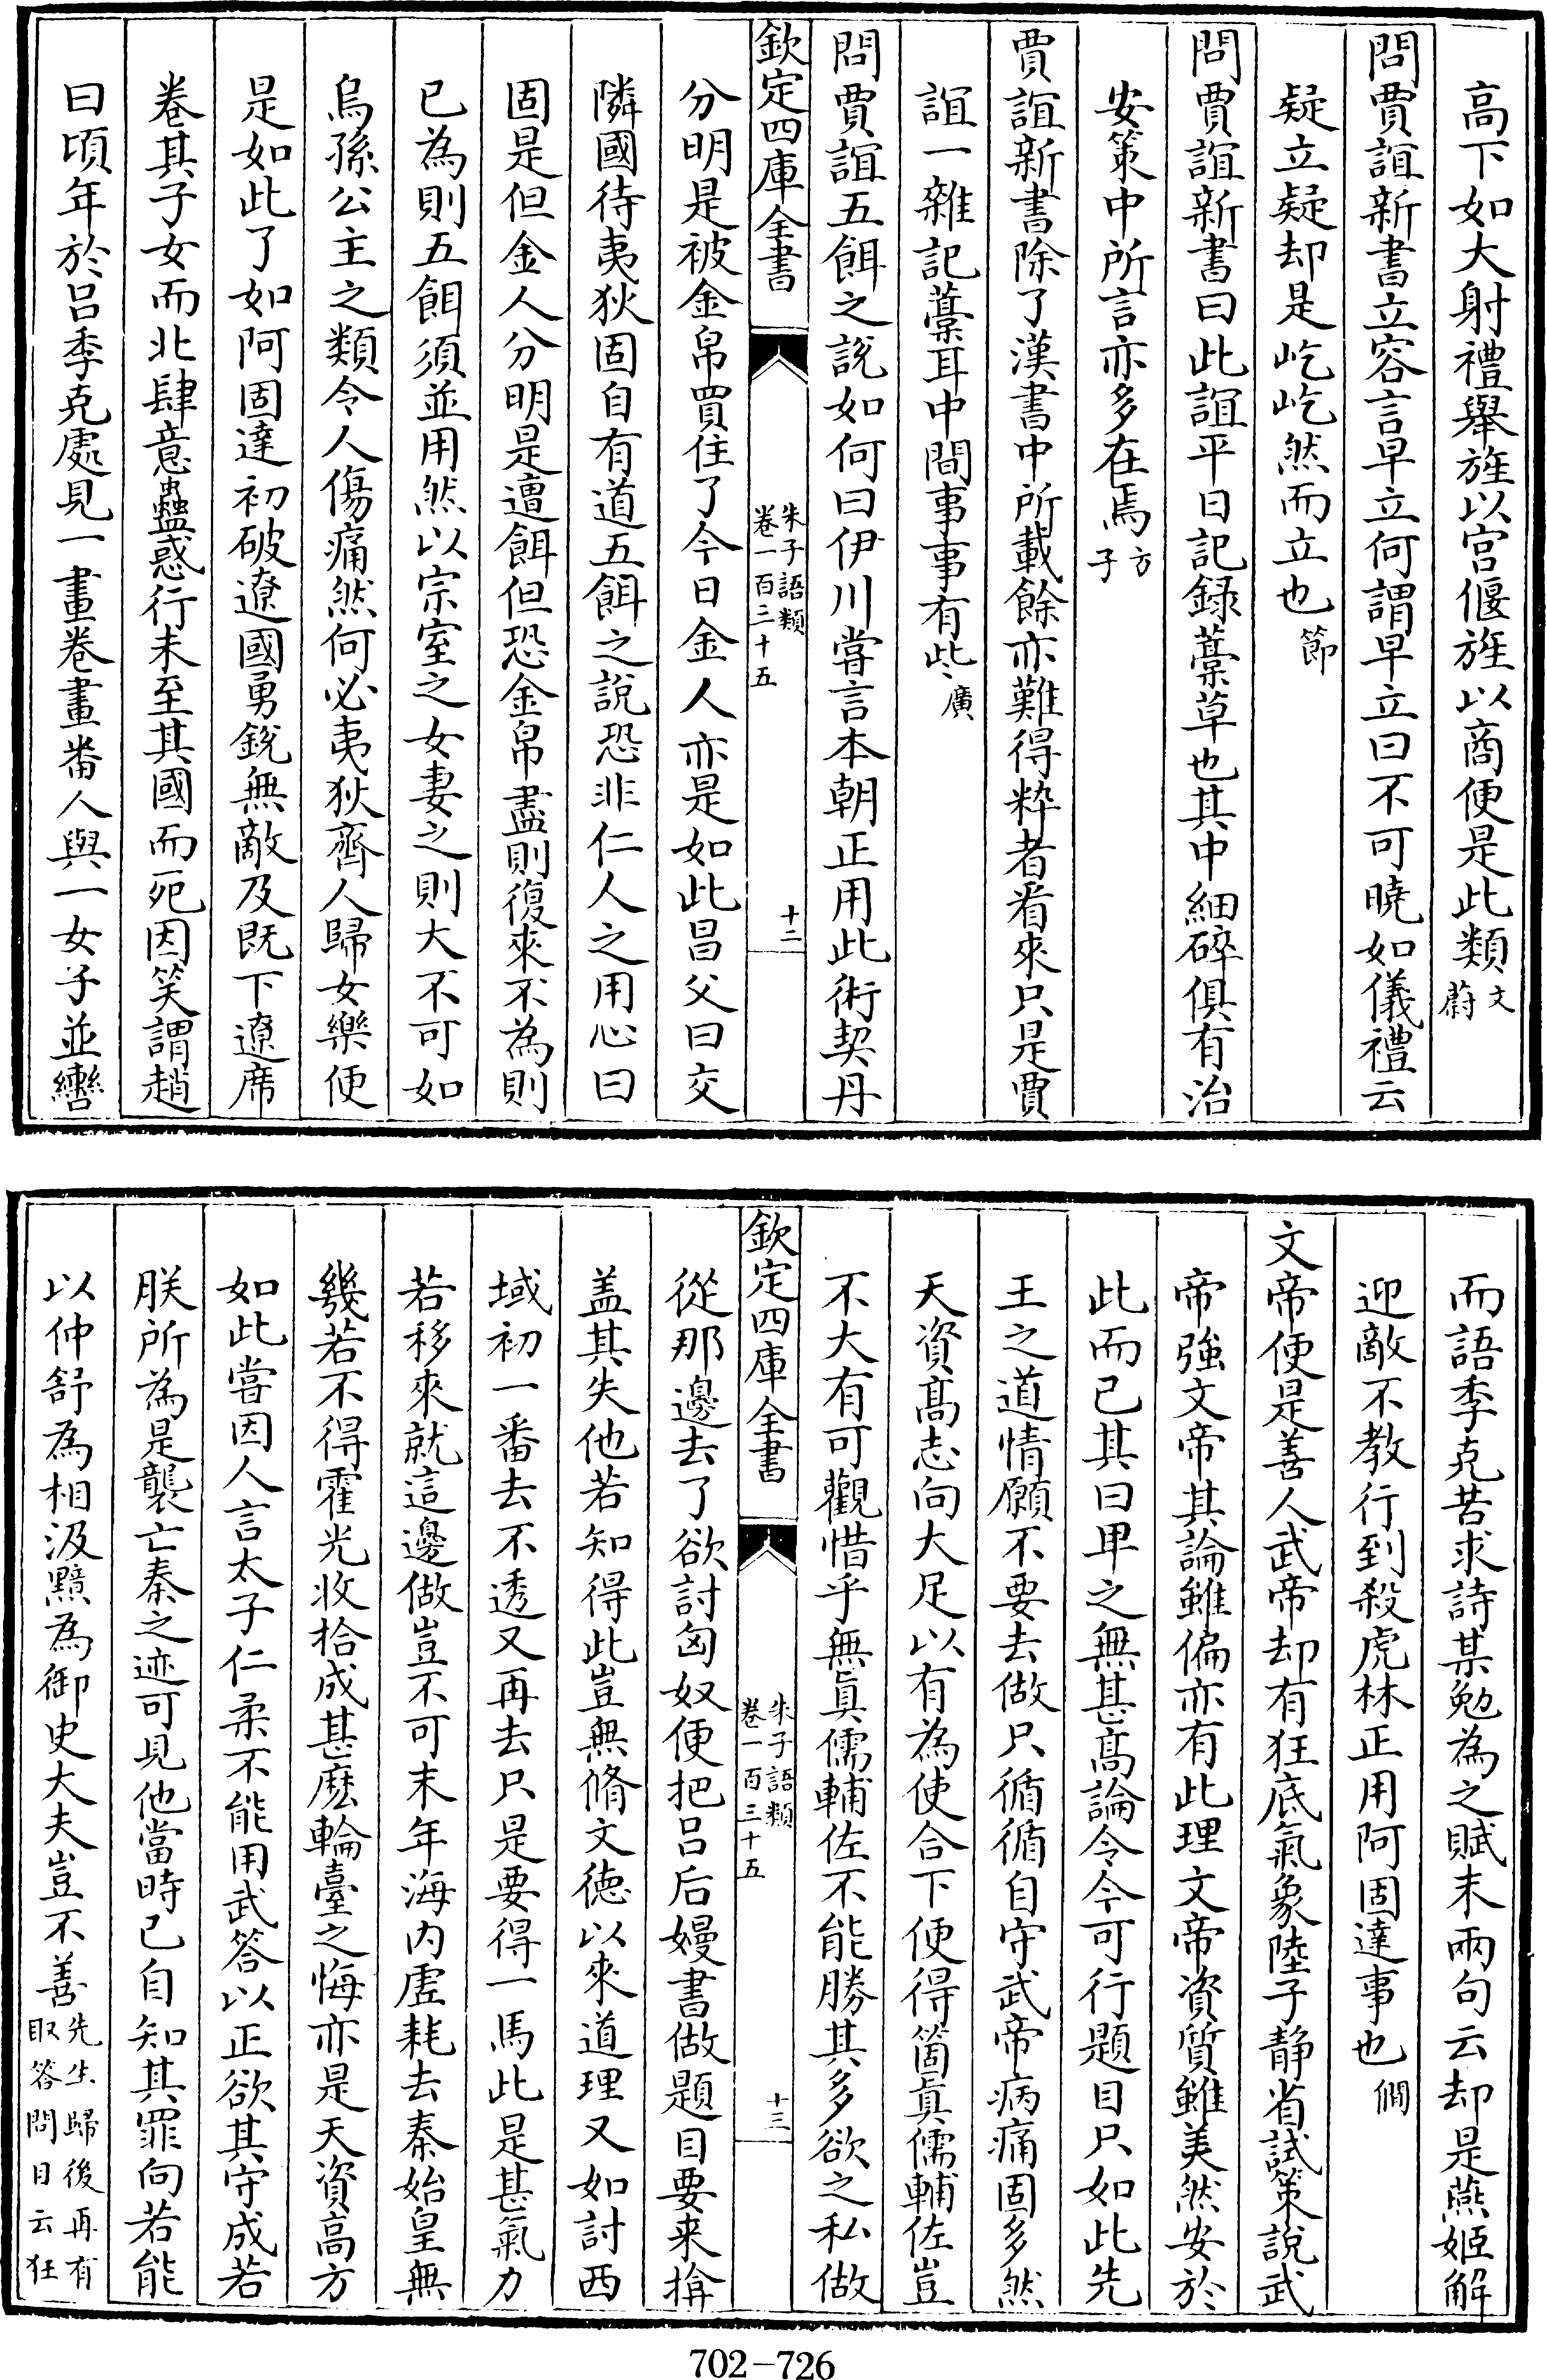 高下如大射禮舉旌以宫偃旌以商便是此類文蔚
問賈誼新書立容言早立何謂早立曰不可曉如儀禮云
疑立疑却是屹屹然而立也節
問賈誼新書曰此誼平日記録藁草也其中細碎俱有治
安策中所言亦多在焉方子
賈誼新書除了漢書中所載餘亦難得粹者看來只是賈
誼一雜記藁耳中間事事有些廣
問賈誼五餌之說如何曰伊川嘗言本朝正用此術契丹
欽定四庫全書
朱子語類
卷一百三十五
十二
分明是被金帛買住了今日金人亦是如此昌父曰交
隣國待夷狄固自有道五餌之說恐非仁人之用心曰
固是但金人分明是遭餌但恐金帛盡則復來不為則
已為則五餌須並用然以宗室之女妻之則大不可如
烏孫公主之類令人傷痛然何必夷狄齊人歸女樂便
是如此了如阿固達初破遼國勇銳無敵及既下遼席
卷其子女而北肆意蠱惑行未至其國而死因笑謂趙
曰頃年於呂季克處見一畫卷畫番人與一女子並轡
而語季克苦求詩某勉為之賦末兩句云却是燕姬解
迎敵不教行到殺虎林正用阿固達事也僩
文帝便是善人武帝却有狂底氣象陸子静省試策說武
帝強文帝其論雖偏亦有此理文帝資質雖美然安於
此而已其曰卑之無甚髙論令今可行題目只如此先
王之道情願不要去做只循循自守武帝病痛固多然
天資髙志向大足以有為使合下便得箇真儒輔佐豈
不大有可觀惜乎無真儒輔佐不能勝其多欲之私做
欽定四庫全書
朱子語類
卷一百三十五
十三
從那邊去了欲討匈奴便把呂后嫚書做題目要来揜
盖其失他若知得此豈無脩文德以來道理又如討西
域初一番去不透又再去只是要得一馬此是甚氣力
若移來就這邊做豈不可末年海内虚耗去秦始皇無
幾若不得霍光收拾成甚麽輪臺之悔亦是天資高方
如此嘗因人言太子仁柔不能用武答以正欲其守成若
朕所為是襲亡秦之迹可見他當時已自知其罪向若能
以仲舒為相汲黯為御史大夫豈不善先生歸後再有取答問目云狂
702-726